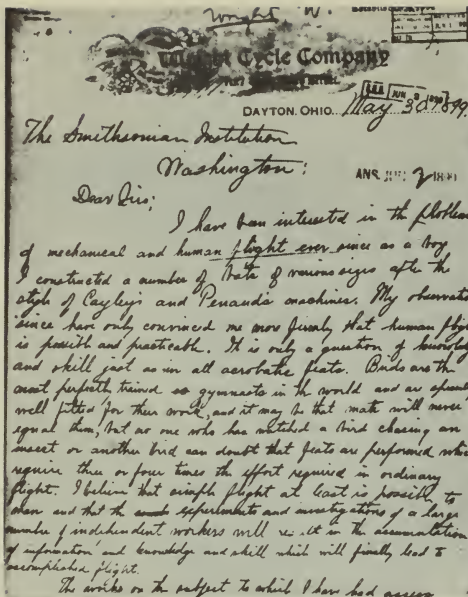 Wright W.
Wright Cycle Company
DAYTON, OHIO. May 30 1899
The Smithsonian Institution
Washington;
Dear Sirs;
I have been interested in the problem
of mechanical and human flight ever since as a boy
I constructed a number of bats of various sizes after the
style of Cayley's and Penaud's machines. My observations
since have only convinced me more firmly that human flight
is possible and practicable. It is only a question of knowledge
and skill just as in all acrobatic feats. Birds are the
most perfectly trained gymnasts in the world and are specially
well fitted for their work, and it may be that man will never
equal them, but no one who has watched a bird chasing an
insect or another bird can doubt that feats are performed which
require three or four times the effort required in ordinary
flight. I believe that simple flight at least is possible to
man and that the experiments and investigations of a large
number of independent workers will result in the accumulation
of information and knowledge and skill which will finally lead to
accomplished flight.
The works on the subject to which I have had access